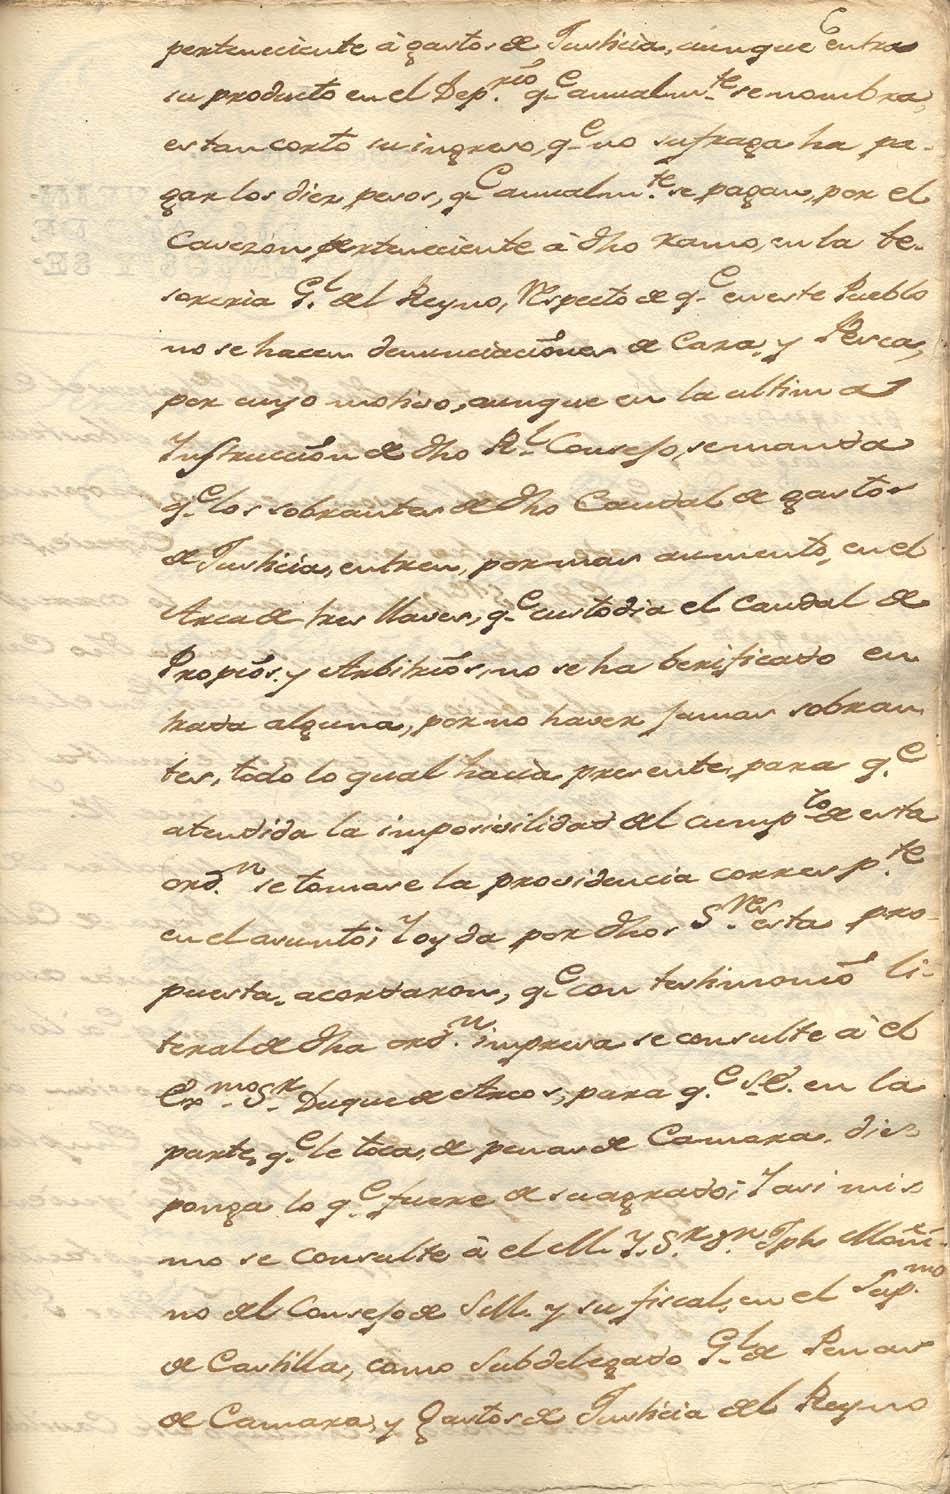 perteneciente à gastos de Justicia, aunque entra
su producto en el Dep.rio q.e anualm.te se nombra,
es tan corto su ingreso, q.e no sufraga ha pa-
gar los diez pesos, q.e anualm.te se pagan, por el
Cavezon perteneciente à dho ramo, en la te-
soreria G.l del Reyno, respecto de q.e en este Pueblo
no se hacen denunciaciones de Caza, y Pesca,
por cuyo motivo, aunque en la ultima
Instruccion de dho R.l Consejo, se manda
q.e los sobrantes de dho Caudal de gastos
de Justicia, entren, por mas aumento, en el
Arca de tres llaves, q.e custodia el caudal de
Propios, y Arbitrios, no se ha berificado en
trada alguna, por no haver jamas sobran
tes, todo lo qual hacia presente, para q.e
atendida la imposivilidad del cumpl.to de esta
ord.n se tomase la providencia corresp.te
en el asunto; Y oyda por dhos S.res esta pro
puesta, acordaron, q.e con testimonio li-
teral de dha ord.n impresa se consulte à el
Ex.mo S.r Duque de Arcos, para q.e S.E. en la
parte, q.e le toca, de penas de Camara, dis-
ponga lo q.e fuere de su agrado; Y asi mis-
mo se consulte à el M. Y. S.r D.n Jph Moñi-
no del Consejo de S.M. y su fiscal, en el Sup.mo
de Castilla, como Subdelegado G.l de Penas
de Camara, y Gastos de Justicia del Reyno